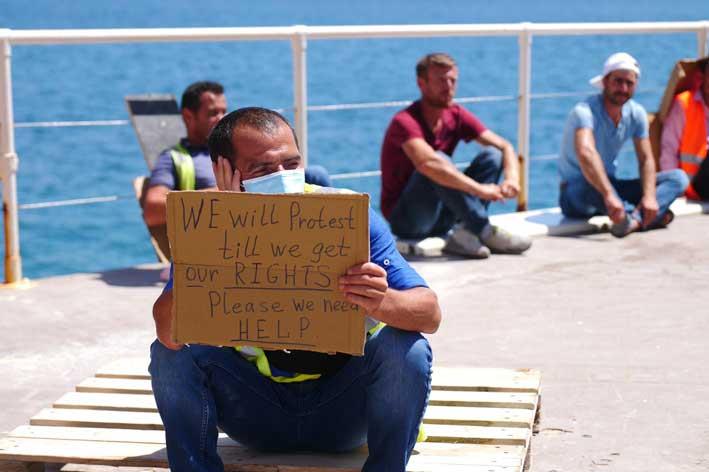 WE will Protest
till we get
our RIGHTS
Please we need
HELP